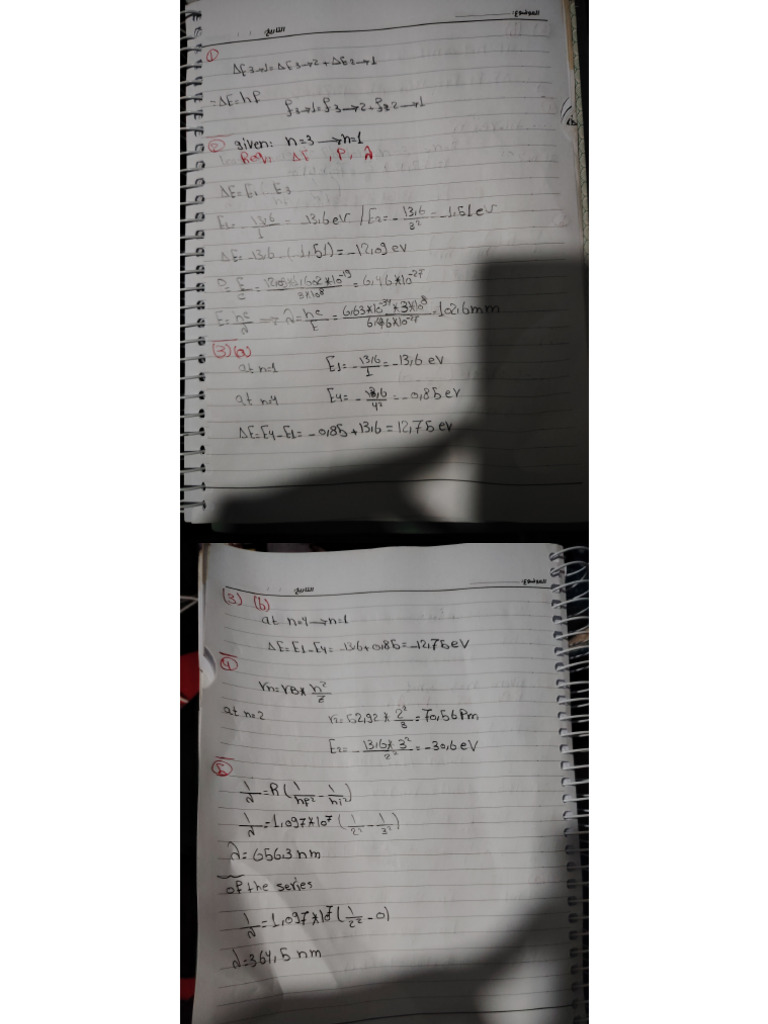 الموضوع:
التاريخ:
(1)
ΔE3→1 = ΔE3→2 + ΔE2→1
= ΔE = hf   f3→1 = f3→2 + f2→1
(2) given: n=3 → n=1
Req: ΔE , P, λ
ΔE = E1 - E3
E1 = -13,6/1 = -13,6 eV / E2 = -13,6/3² = -1,51 eV
ΔE = -13,6 - (-1,51) = -12,09 eV
P = E/c = 12,09*1,602*10^-19/3*10^8 = 6,46*10^-27
E = hc/λ → λ = hc/E = 6,63*10^-34*3*10^8/6,46*10^-27 = 102,6 mm
(3)(a)
at n=1   E1 = -13,6/1 = -13,6 eV
at n=4   E4 = -13,6/4² = -0,85 eV
ΔE = E4 - E1 = -0,85 + 13,6 = 12,75 eV
الموضوع:
التاريخ:
(3) (b)
at n=4 → n=1
ΔE = E1 - E4 = -13,6 + 0,85 = -12,75 eV
(4)
rn = rB * n²/z
at n=2   r2 = 52,92 * 2²/3 = 70,56 Pm
E2 = -13,6*3²/2² = -30,6 eV
(5)
1/λ = R(1/nf² - 1/ni²)
1/λ = 1,097*10^7 (1/2² - 1/3²)
λ = 656.3 nm
of the series
1/λ = 1,097*10^7 (1/2² - 0)
λ = 364,5 nm